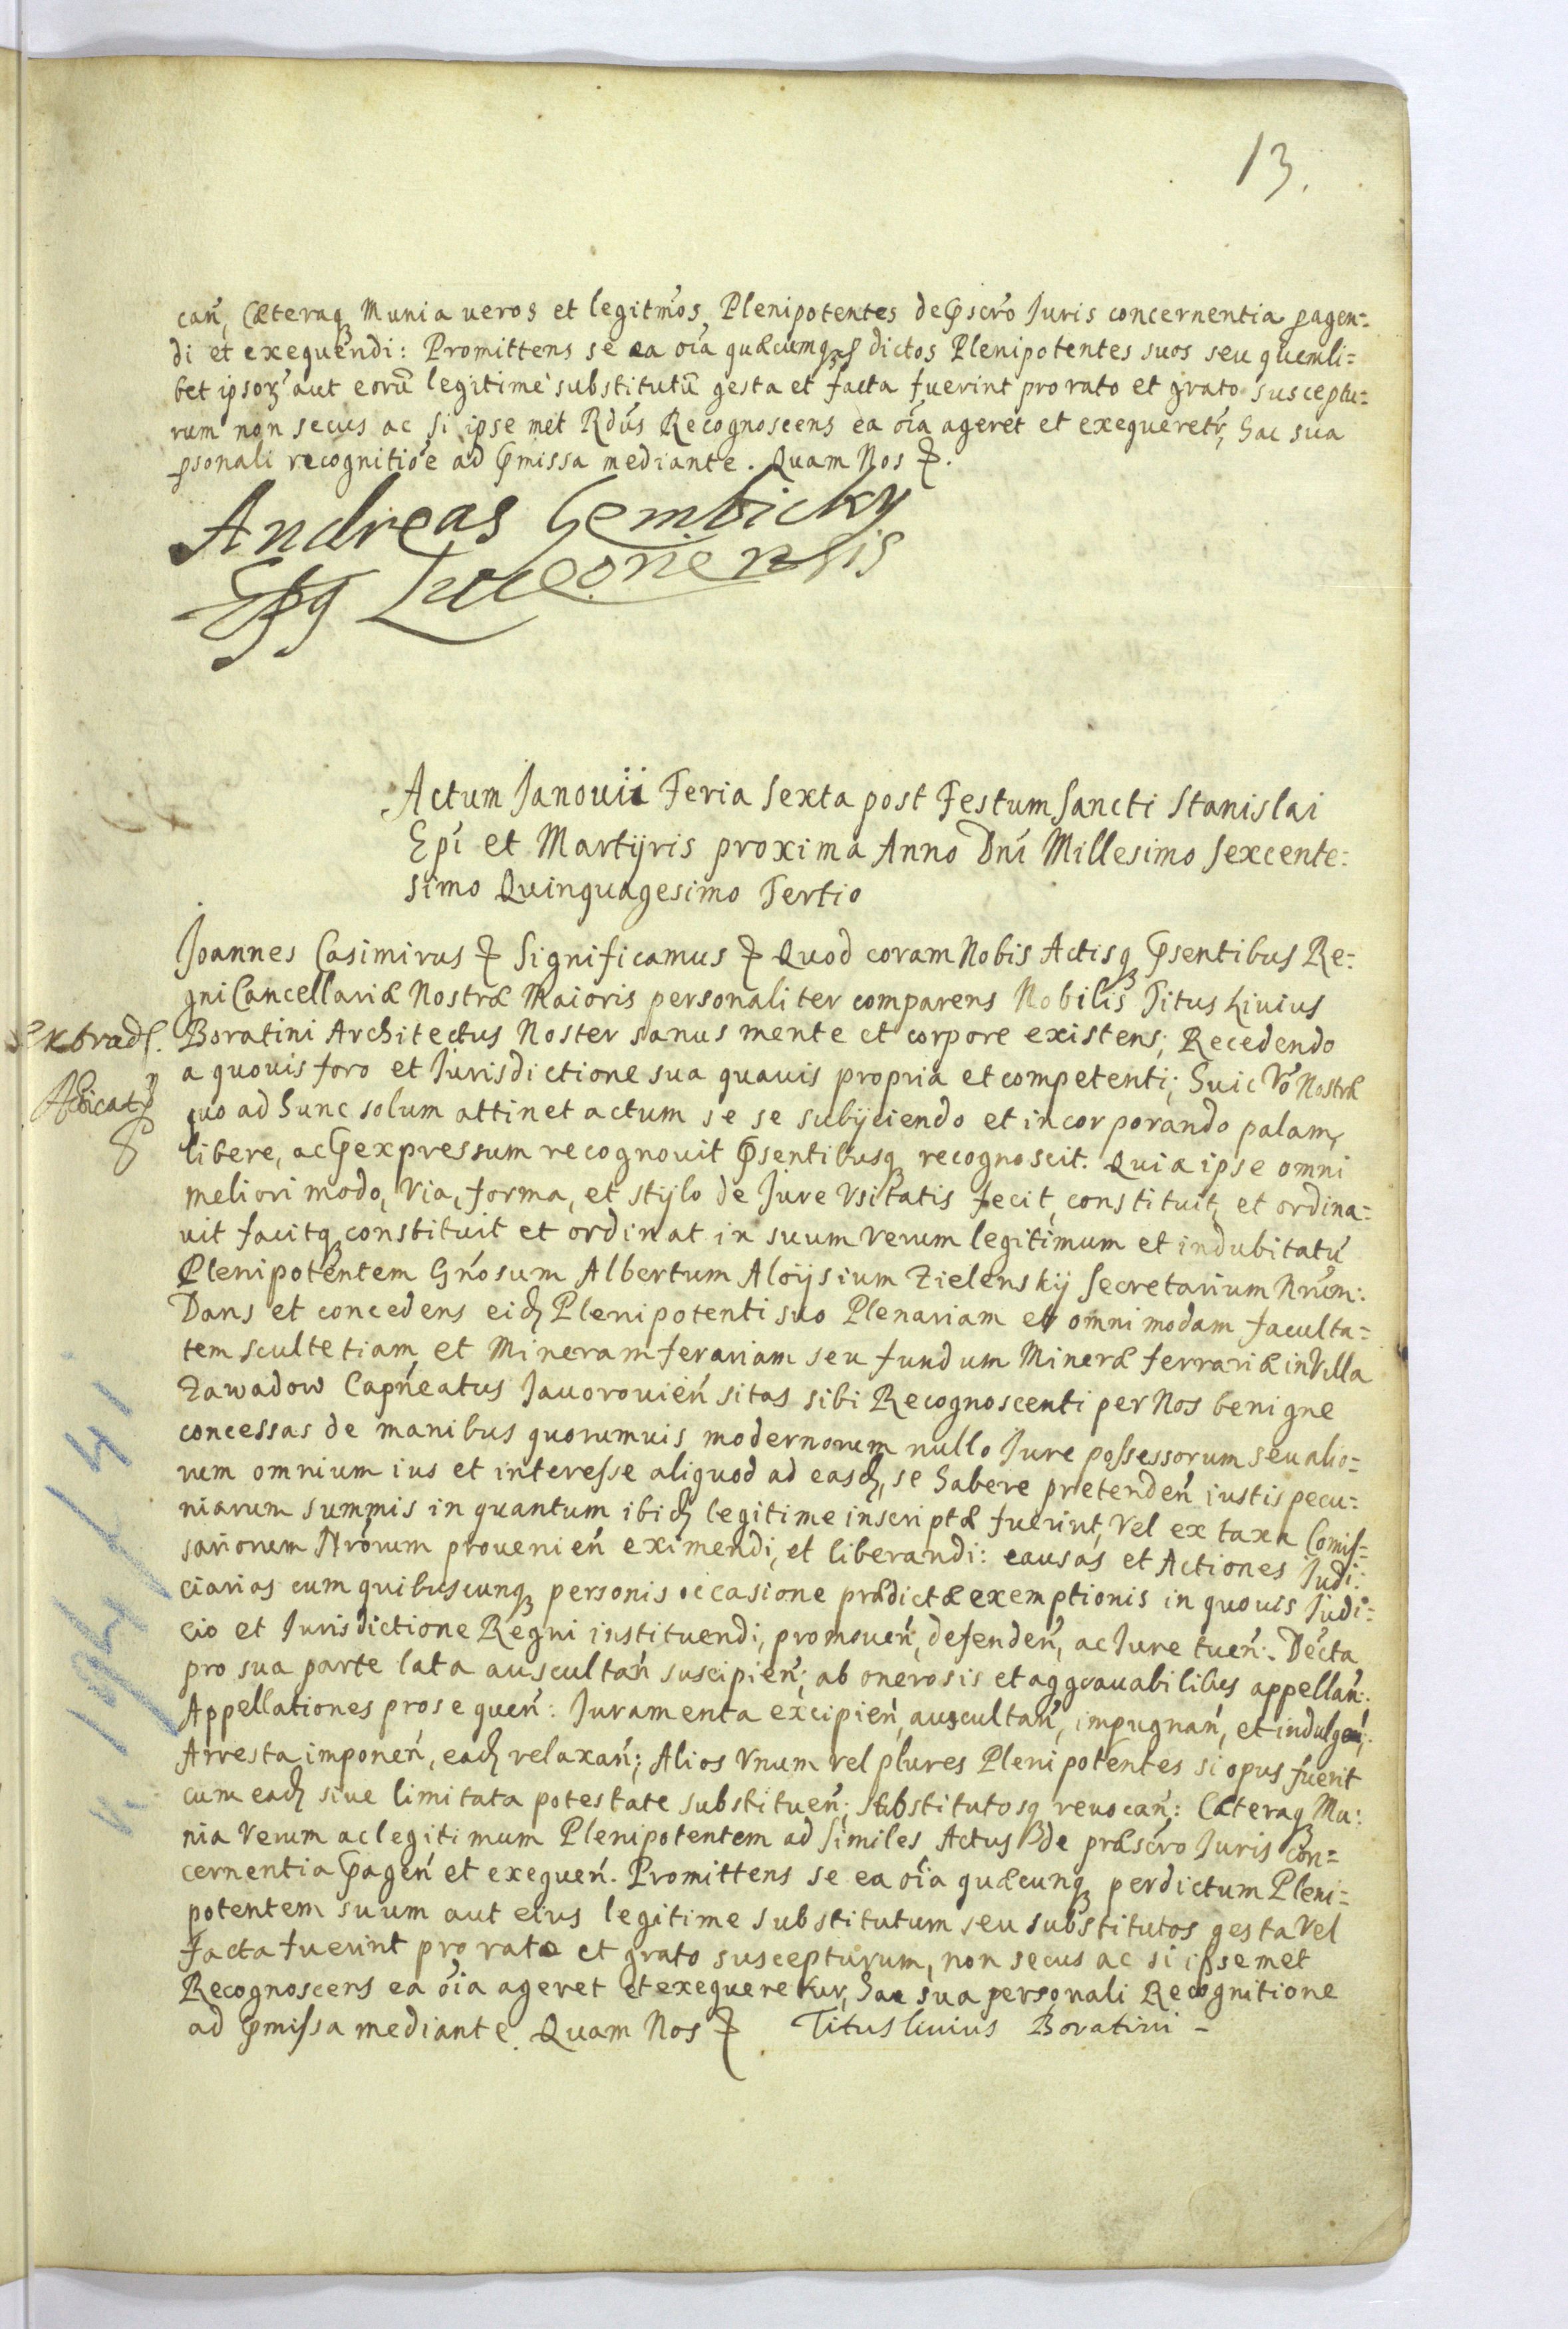 13.
cań, Cæteraq Munia ueros et legitmos, Plenipotentes de pscro Juris concernentia pagen:
di et exequendi: Promittens se ea oia quæcumq p dictos Plenipotentes suos seu quemli=
bet ipsor aut eorũ legitime substitutũ gesta et facta fuerint pro rato et grato susceptu:
rum non secus ac si ipse met Rdus Recognoscens ea oia ageret et exequeretr, hac sua
psonali recognitioe ad pmissa mediante. Quam Nos
Andreas Gembicky
Epq Luceonensis
Actum Janouii Feria Sexta post Festum Sancti Stanislai
Epi et Martyris proxima Anno Dni Millesimo Sexcente:
simo Quinquagesimo Tertio
Joannes Casimirus Significamus Quod coram Nobis Actisq psentibus Re:
gni Cancellariæ Nostræ Maioris personaliter comparens Nobilis Titus Liuius
Extrad.
Boratini Architectus Noster sanus mente et corpore existens; Recedendo
a quouis foro et Jurisdictione sua quauis propria et competenti; huic Vo Nostræ
quo ad hunc solum attinet actum se se subijciendo et incorporando palam,
libere, ac p expressum recognouit psentibusq recognoscit. Quia ipse omni
meliori modo, via, forma, et stylo de Jure Vsitatis fecit, constituit, et ordina=
uit facitq constituit et ordinat in suum verum legitimum et indubitatũ
Plenipotentem Gnosum Albertum Aloysium Zielenskij Secretarium Nrum:
Dans et concedens eid Plenipotenti suo Plenariam et omnimodam faculta=
tem scultetiam, et Mineram ferariam seu fundum Mineræ ferrariæ in Villa
Zawadow Capneatus Jauorouień sitas sibi Recognoscenti per Nos benigne
concessas de manibus quorumuis modernorum nullo Jure possessorum seu alio=
rum omnium ius et interesse aliquod ad easd, se habere pretendeń iustis pecu:
niarum summis in quantum ibid legitime inscriptæ fuerint, vel ex taxa Comis=
sariorum Nrorum prouenień eximendi, et liberandi: causas et Actiones Judi:
ciarias cum quibuscunq personis occasione prædictæ exemptionis in quouis Judi=
cio et Jurisdictione Regni instituendi, promoueń, defendeń, ac Jure tueń. Decta
pro sua parte lata auscultań suscipień; ab onerosis et aggrauabilibus appellań:
Appellationes prosequeń: Juramenta excipień, auscultań, impugnań, et indulgeń;
Arresta imponeń, ead relaxań; Alios Vnum vel plures Plenipotentes si opus fuerit
cum ead siue limitata potestate substitueń; substitutosq reuocań; Cæteraq Mu:
nia verum ac legitimum Plenipotentem ad similes Actus de præscro Juris con=
cernentia pageń et exequeń. Promittens se ea oia quæcunq per dictum Pleni=
potentem suum aut eius legitime substitutum seu substitutos gesta vel
facta fuerint pro rato et grato suscepturum, non secus ac si ipsemet
Recognoscens ea oia ageret et exequeretur, hac sua personali Recognitione
ad pmissa mediante. Quam Nos Titus liuius Boratini -